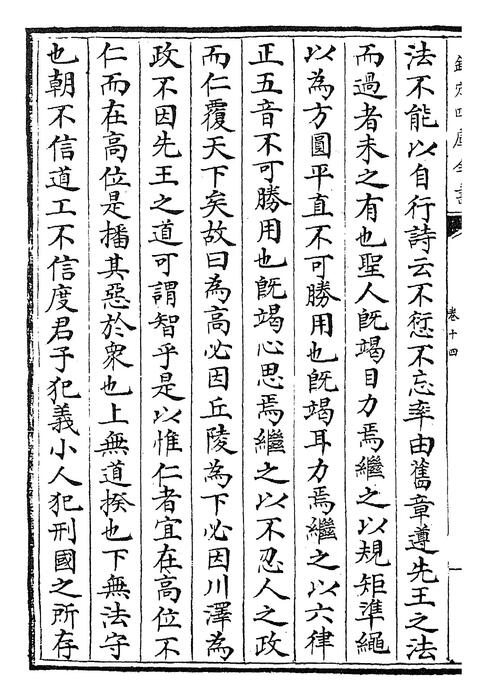 欽定四庫全書
卷十四
法不能以自行詩云不愆不忘率由舊章遵先王之法
而過者未之有也聖人旣竭目力焉繼之以規矩準繩
以為方圓平直不可勝用也旣竭耳力焉繼之以六律
正五音不可勝用也旣竭心思焉繼之以不忍人之政
而仁覆天下矣故曰為高必因丘陵為下必因川澤為
政不因先王之道可謂智乎是以惟仁者宜在高位不
仁而在高位是播其惡於衆也上無道揆也下無法守
也朝不信道工不信度君子犯義小人犯刑國之所存